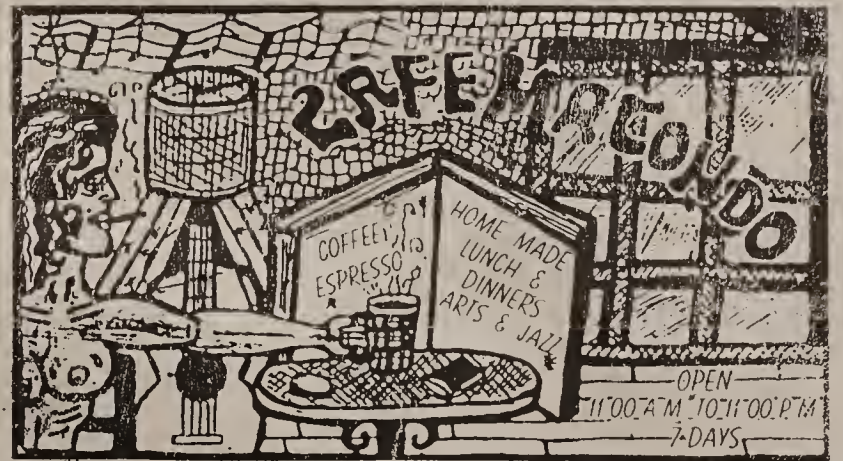 CAFE MACONDO
COFFEE
ESPRESSO
HOME MADE
LUNCH &
DINNERS
ARTS & JAZZ
OPEN
11:00 A M TO 11:00 P M
7 DAYS